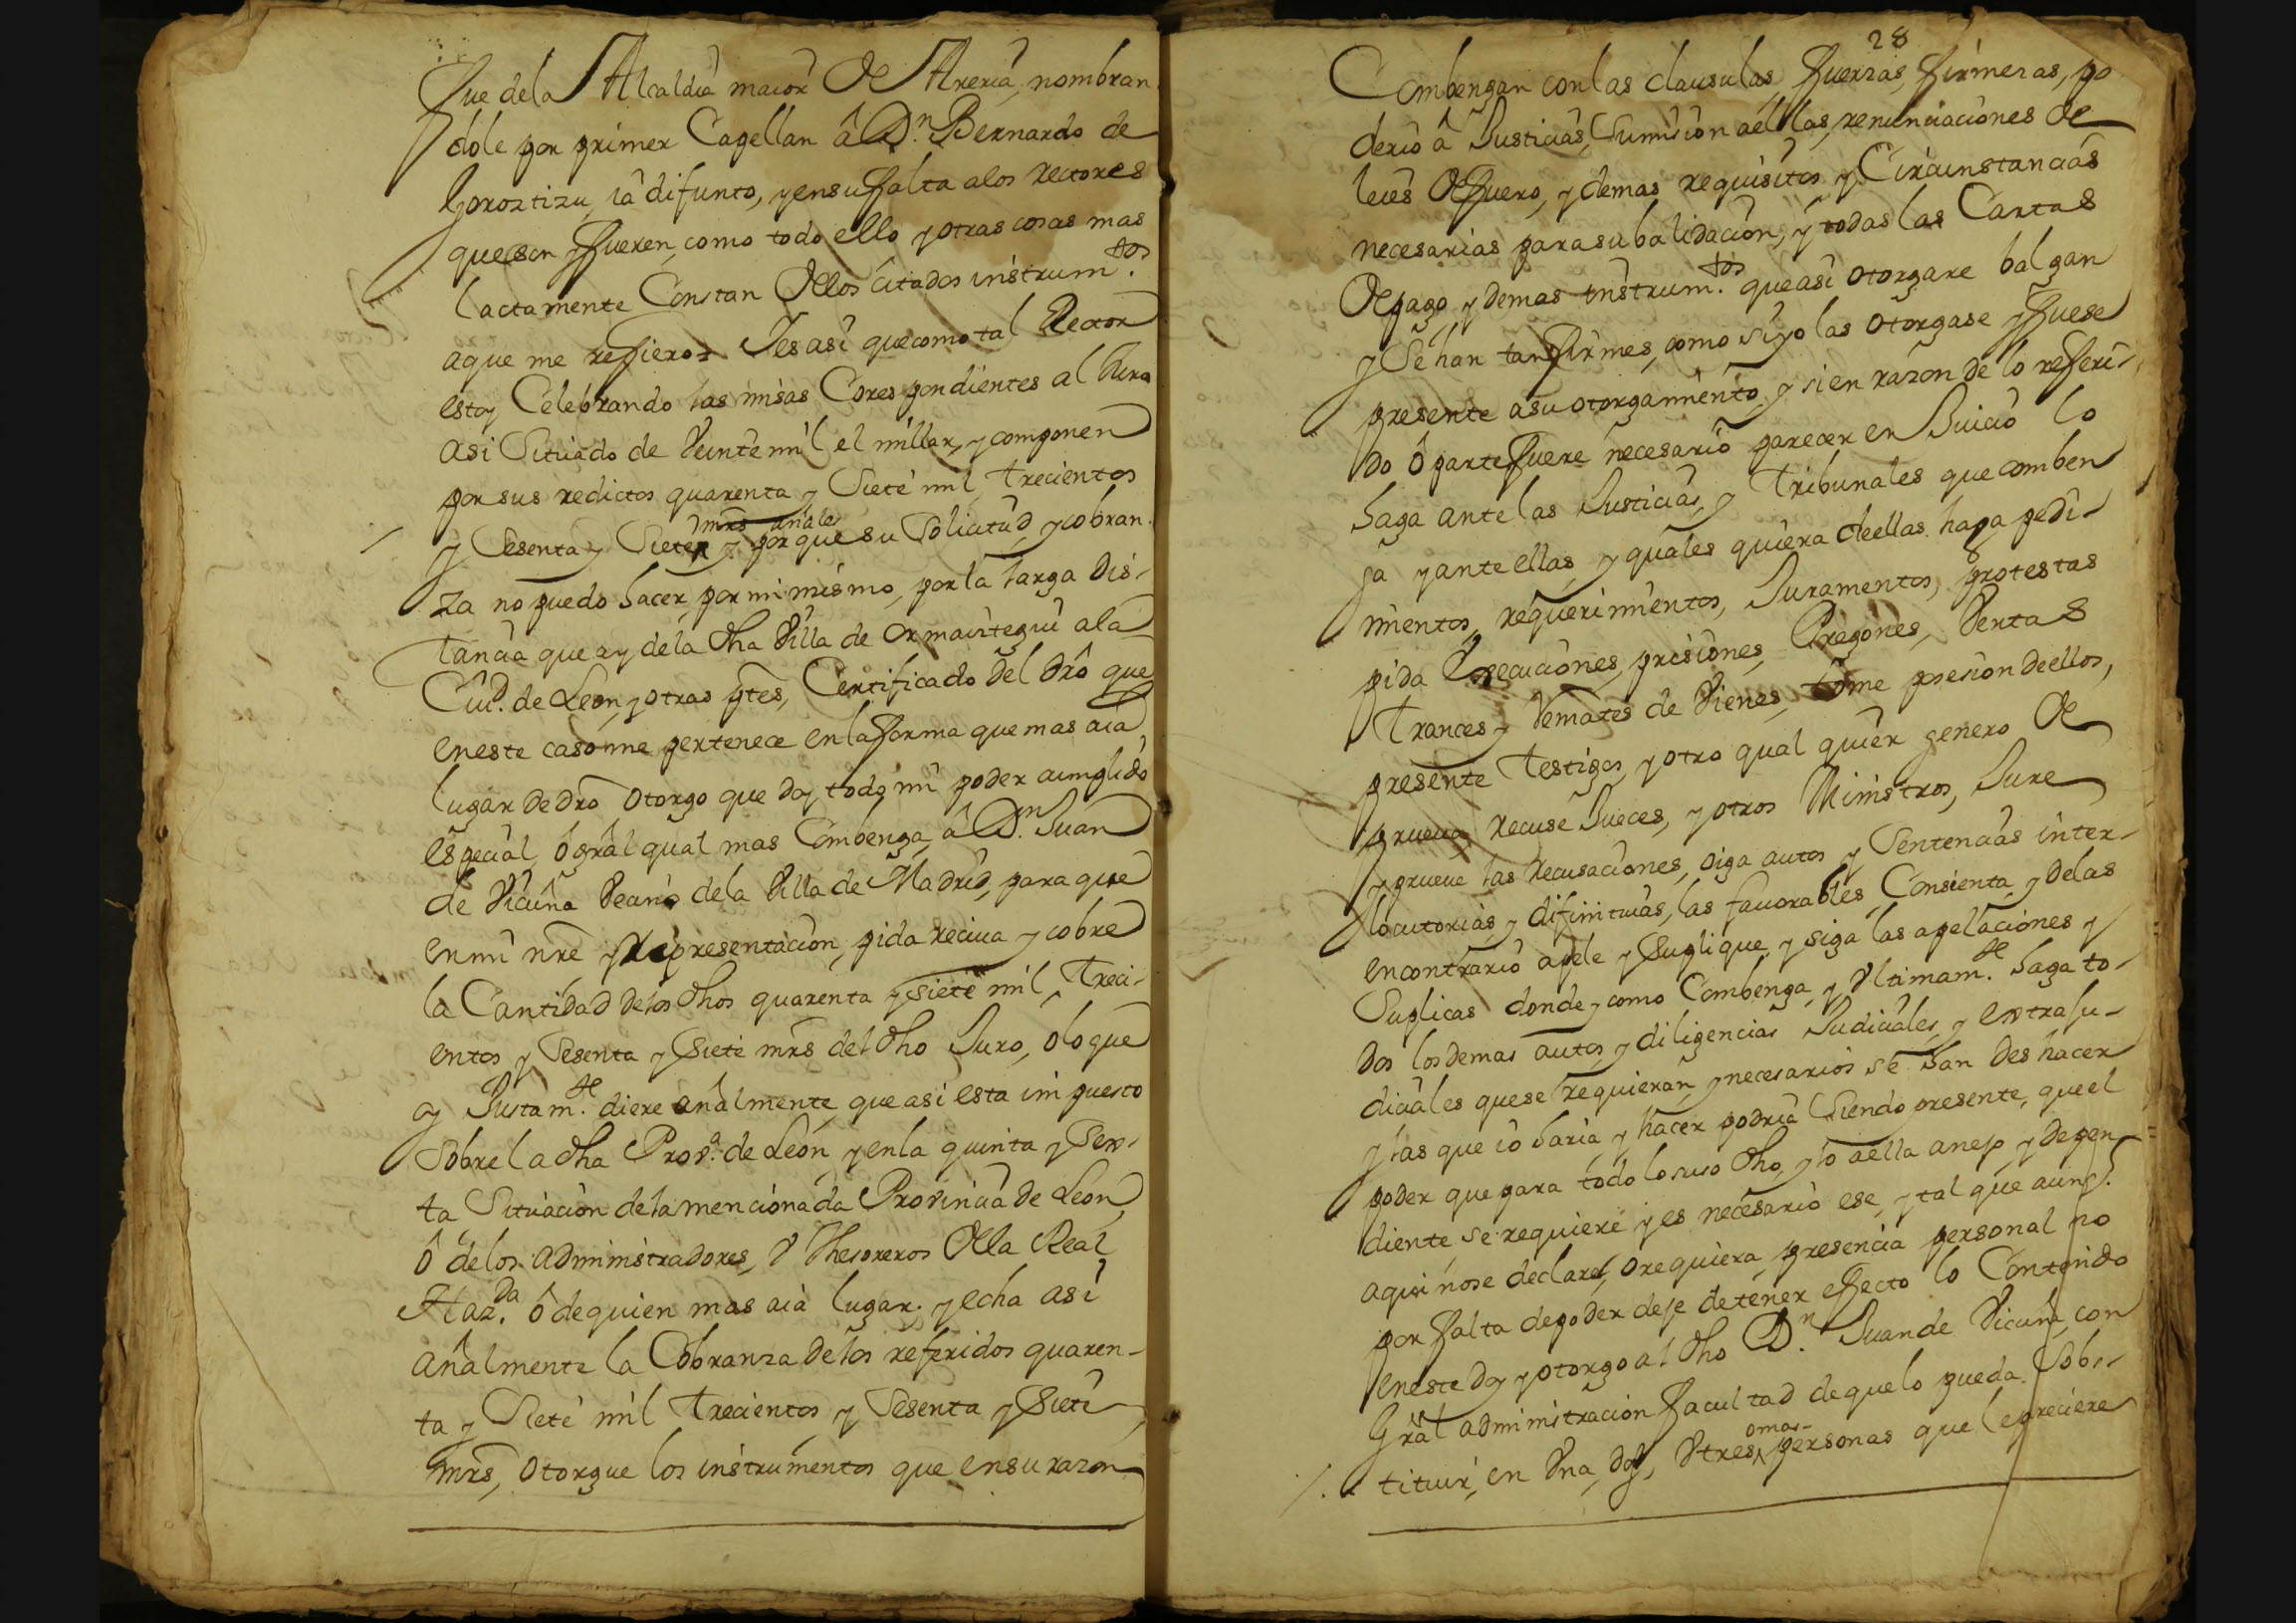 que dela Alcaldia maior de Areria, nombran
dole por primer Capellan â Dn. Bernardo de
Goroztizu, ia difunto, y en su falta alos rectores
que son y fueren, como todo ello y otras cosas mas
lactamente Constan dellos citados instrum.tos
aque me refiero = Yes asi que como tal Rector
estoy Celebrando las misas Corespondientes al Juro
asi Situado de Veinte mil el millar, y componen
por sus redictos quarenta y Siete mil Trecientos
y Sesenta y Siete mrs añales y por que su Solicitud, y cobran
za no puedo hacer por mi mismo, por la larga dis-
tancia que ay dela dha Villa de Ormaiztegui ala
Ciud. de Leon, y otras ptes, Certificado del drô que
en este caso me pertenece en la forma que mas aia
lugar de drô Otorgo que doy todo mi poder cumplido
especial, ô grâl qual mas Combenga, â Dn. Juan
de Vicuña Vecino dela Villa de Madrid, para que
en mi nre y Representacion, pida reciva y cobre
la Cantidad delos dhos quarenta y siete mil, Treci-
entos y Sesenta y Siete mrs del dho Juro, olo que
oy Justam.te diere añalmente que asi esta impuesto
Sobre la dha Prov.a de Leon y en la quinta y Sex-
ta Situacion dela mencionada Provincia de Leon
ô delos administradores, V thesoreros della Real
Haz.da ô de quien mas aia lugar. y echa asi
añalmente la Cobranza delos referidos quaren-
ta y Siete mil Trecientos y Sesenta y Siete
mrs, Otorgue los instrumentos que en su razon
28
Combengan con las clausulas, fuerzas, firmezas, po
derio â Justicias, Sumision aellas, renunciaciones de
leies de fuero, y demas requisitos y Circunstancias
necesarias para su balidacion, y todas las Cartas
de pago y demas instrum.tos que asi otorgare balgan
y Se han tan firmes, como si yo las otorgase y fuese
presente a su otorgamiento, y si en razon de lo referi-
do ô parte fuere necesario parecer en Juicio lo
haga ante las Justicias, y Tribunales que comben
ga y ante ellas, y quales quiera deellas haga pedi-
mientos, requerimientos, Juramentos, protestas
pida Execuciones, prisiones, Pregones, Ventas
Trances y Remates de Vienes, tome posesion deellos,
presente Testigos, y otro qual quier genero de
prueva, recuse Jueces, y otros Ministros, Jure
y prueve las Recusaciones, oiga autos y Sentencias inter-
locutorias, y difinitivas, las favorables Consienta y delas
en contrario apele y Suplique, y siga las apelaciones y
Suplicas donde y como Combenga, y Vltimam.te haga to-
dos los demas autos, y diligencias Judiciales, y extraju-
diciales que se requieran, y necesarios se han des hacer
y las que io haria y hacer podria Siendo presente, que el
poder que para todo lo suso dho, y lo aella anejo y depen
diente se requiere y es necesario ese, y tal que aunq.
aqui no se declare, o requiera presencia personal no
por falta de poder deje detener efecto lo Contenido
en este doy y otorgo al dho Dn. Juan de Vicuña, con
Grâl administracion facultad de que lo pueda Sobs-
tituir, en Vna, dos, V tres, omas personas que le pareciere